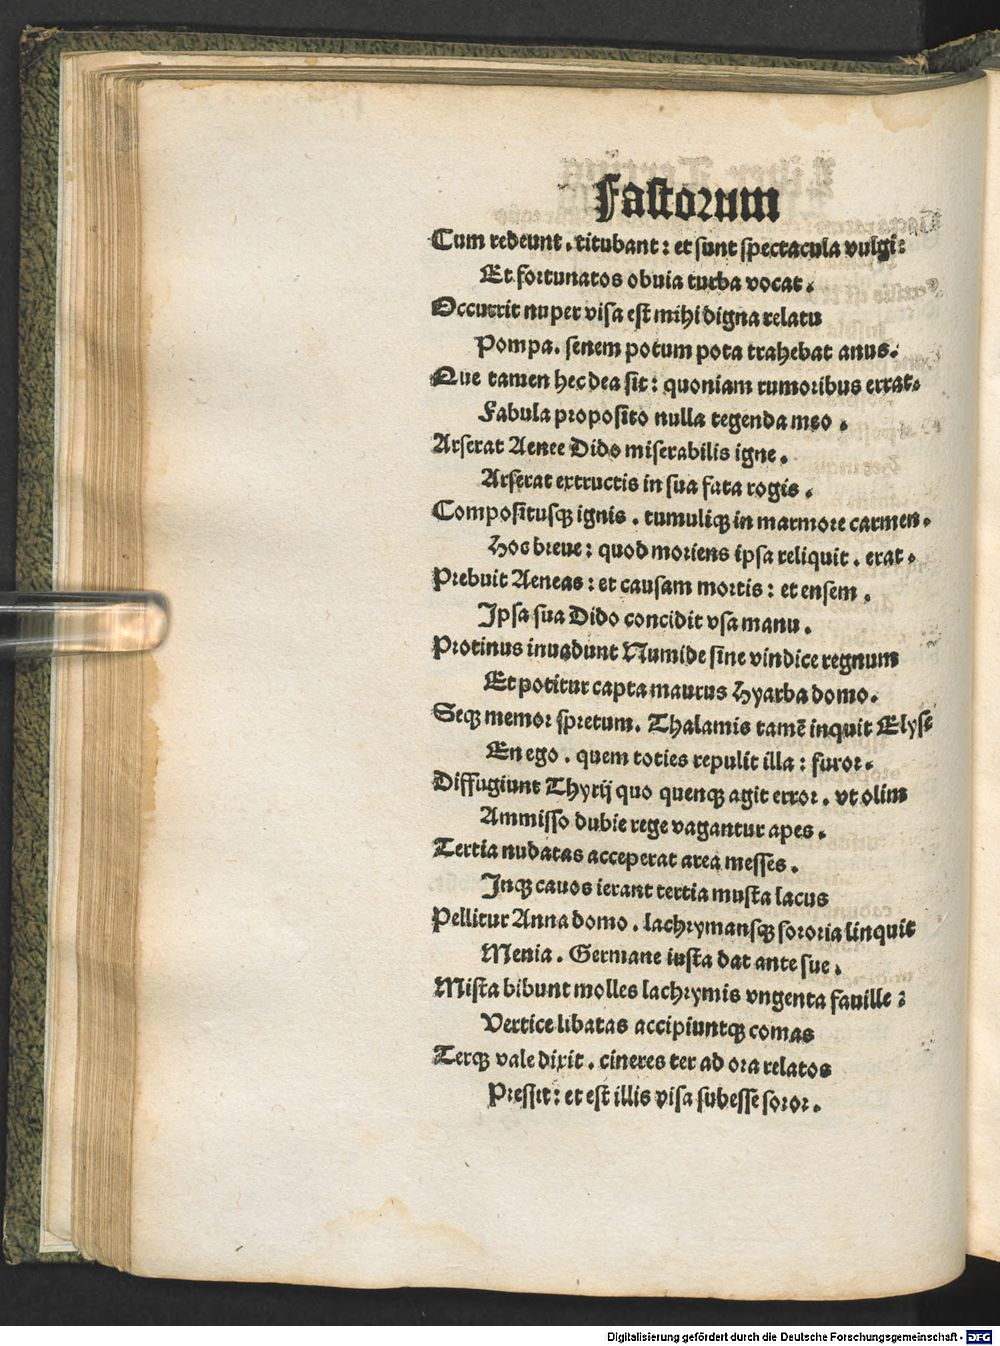 Fastorum
Cum redeunt. titubant: et sunt spectacula vulgi:
Et fortunatos obuia turba vocat.
Occurrit nuper visa est mihi digna relatu
Pompa. senem potum pota trahebat anus.
Que tamen hec dea sit: quoniam rumoribus errat.
Fabula proposito nulla tegenda meo.
Arserat Aenee Dido miserabilis igne.
Arserat extructis in sua fata rogis.
Compositusqꝫ ignis. tumuliqꝫ in marmore carmen.
Hoc breue: quod moriens ipsa reliquit. erat.
Prebuit Aeneas: et causam mortis: et ensem.
Ipsa sua Dido concidit vsa manu.
Protinus inuadunt Numide sine vindice regnum
Et potitur capta maurus Hyarba domo.
Seqꝫ memor spretum. Thalamis tamē inquit Elyse
En ego. quem toties repulit illa: furor.
Diffugiunt Thyrij quo quenqꝫ agit error. vt olim
Ammisso dubie rege vagantur apes.
Tertia nudatas acceperat area messes.
Inqꝫ cauos ierant tertia musta lacus
Pellitur Anna domo. lachrymansqꝫ sororia linquit
Menia. Germane iusta dat ante sue.
Mista bibunt molles lachrymis vngenta fauille:
Vertice libatas accipiuntqꝫ comas
Terqꝫ vale dixit. cineres ter ad ora relatos
Pressit: et est illis visa subesse soror.
Digitalisierung gefördert durch die Deutsche Forschungsgemeinschaft - DFG